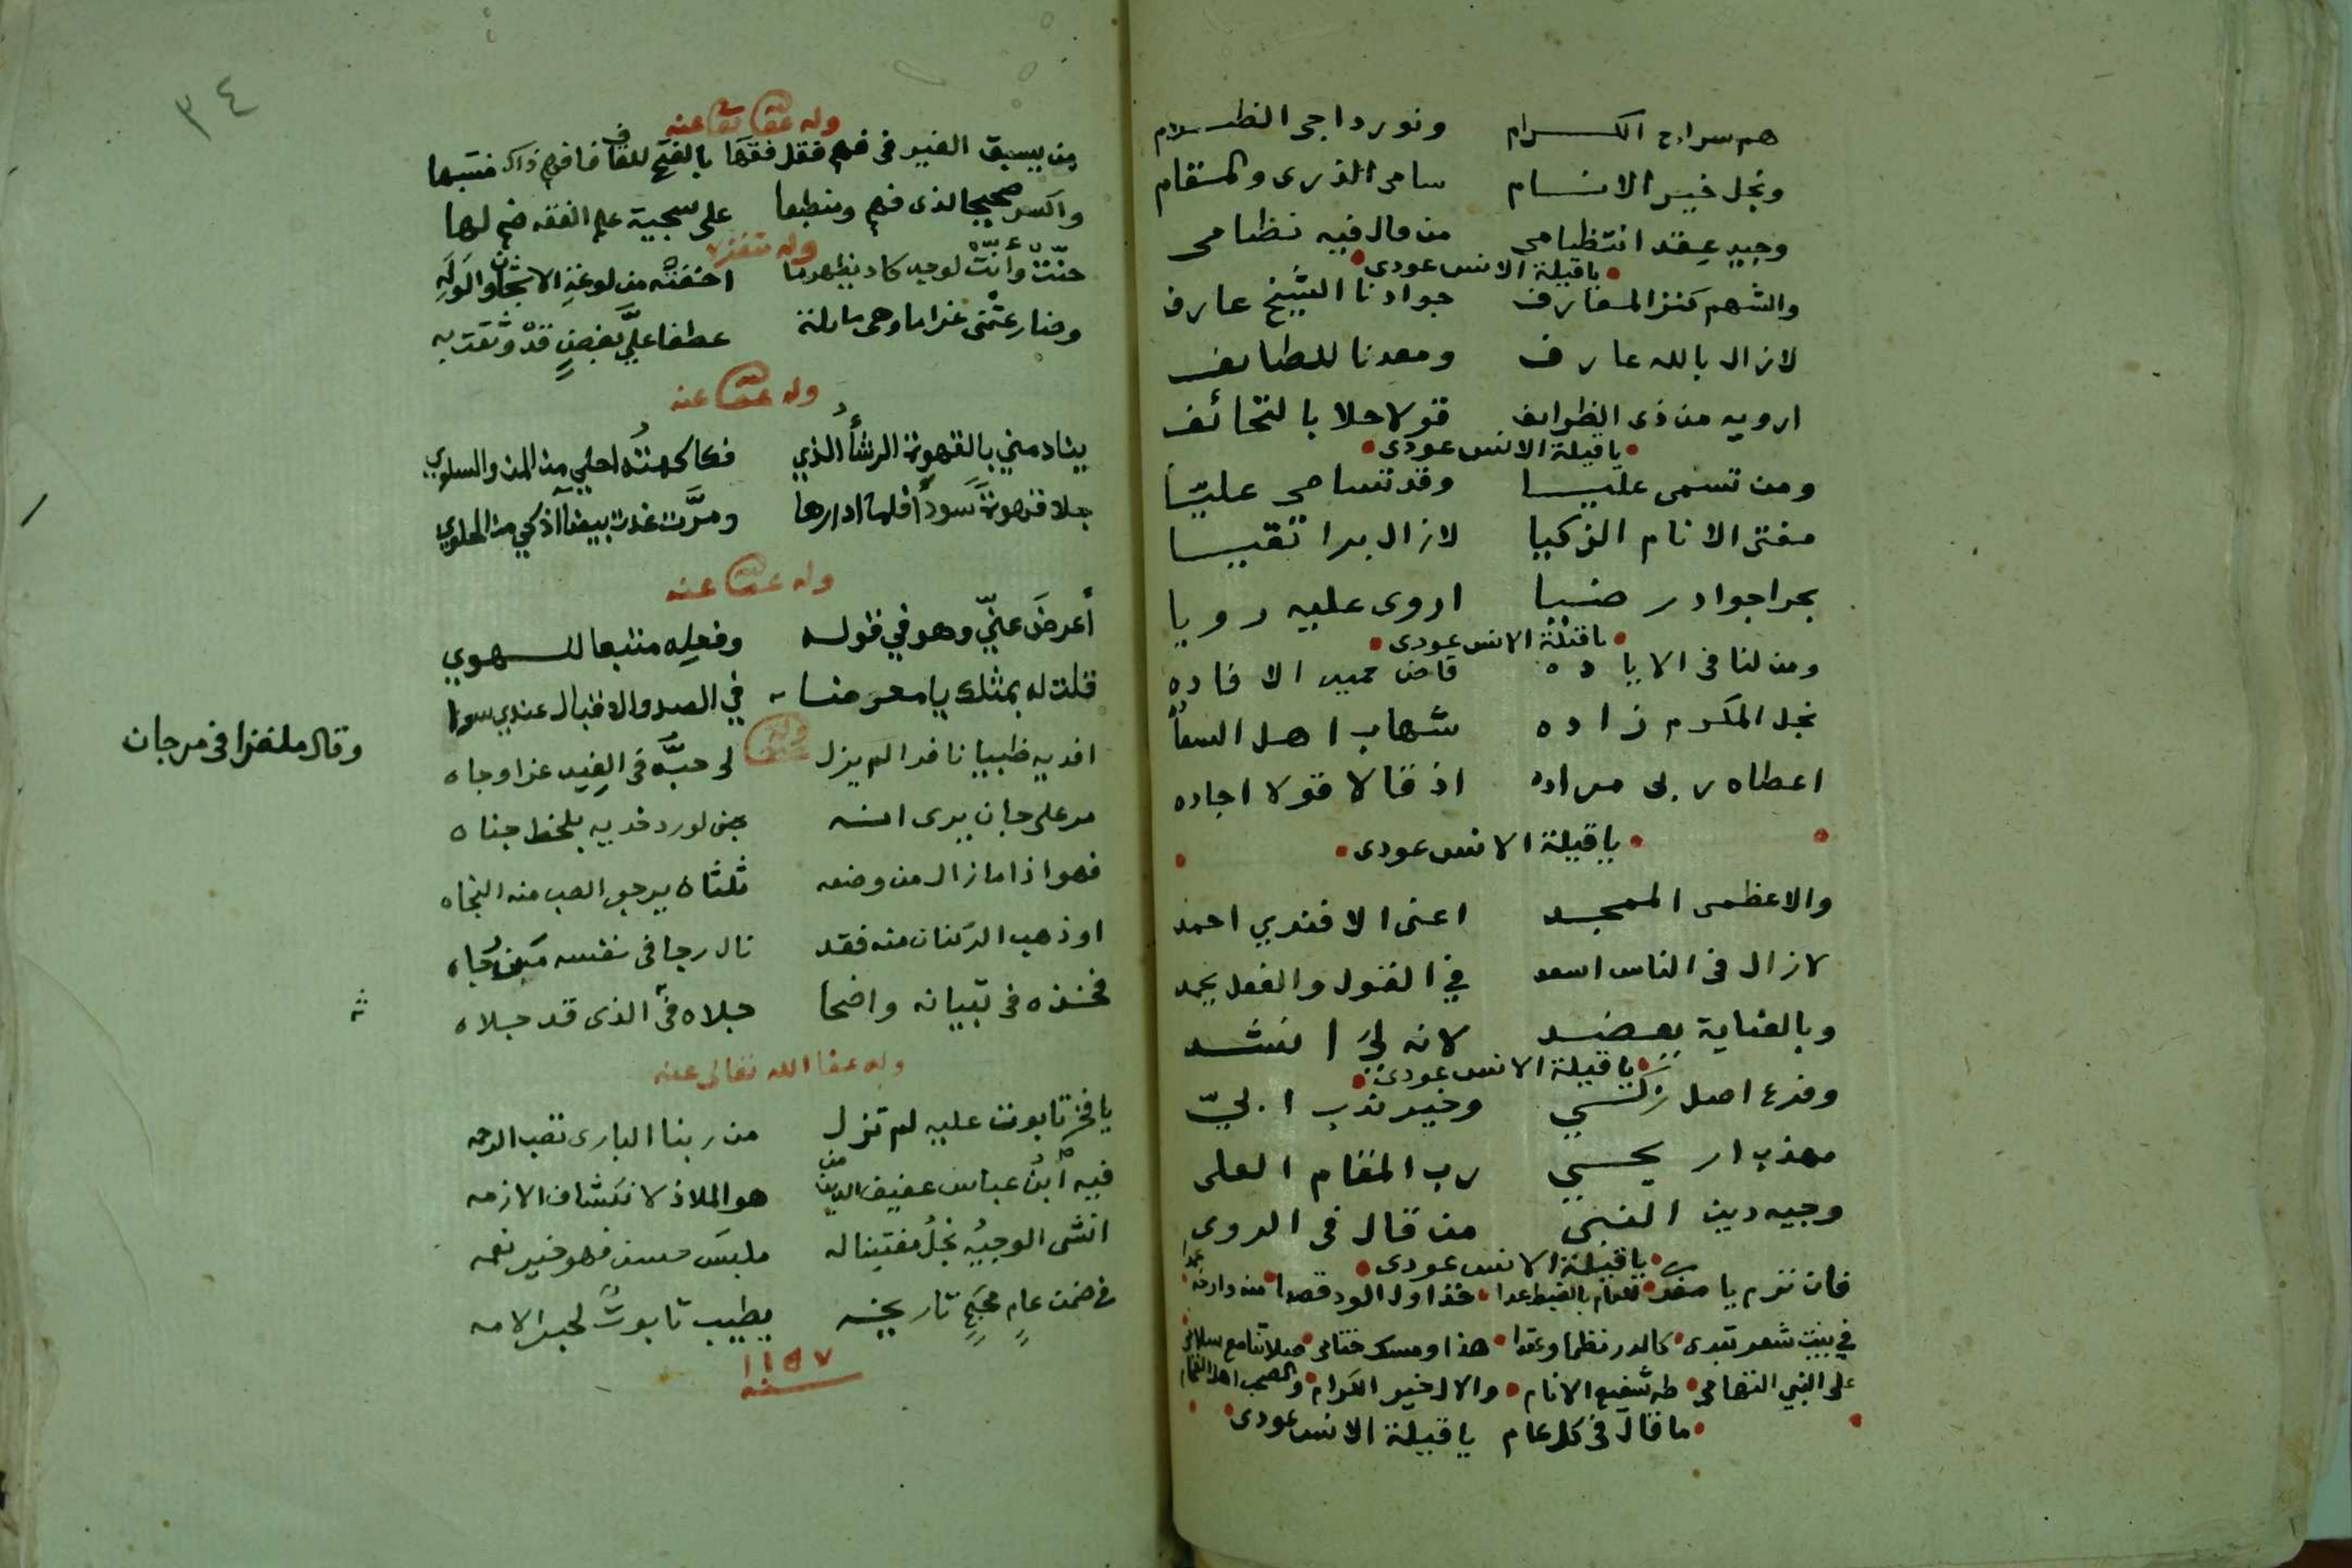 هم سراج الكرام ونور داجى الظلام
ونجل خير الانام سامى الذرى والمقام
وجيد عقد انتظامى من قال فيه نظامى
ياقبلة الانس عودى
والشهم كنز المعارف جوادنا الشيخ عارف
لازال بالله عارف ومعدنا للطايف
ارويه من ذى الظرايف قولا حلا بالتحائف
ياقبلة الانس عودى
ومن تسمى عليا وقد تسامى عليّا
مفتى الانام الزكيا لازال برا تقيا
بحرا جوادر ضيا اروى عليه رويا
ياقبلة الانس عودى
ومن لنا فى الاياده قاض حميد الافاده
نجل المكرم زاده شهاب اهل
اعطاه ربى مراده اذ قالا قولا اجاده
ياقبلة الانس عودى
والاعظمى الممجد اعنى الافندي احمد
لازال فى الناس اسعد في القول والفعل يحمد
وبالعناية يعضد لانه لي انشد
ياقبلة الانس عودى
وفرع اصل زكي وخير ندب ابيّ
مهذب اريحي رب المقام العلى
وجيه دين النبي من قال فى الروى
ياقبلة الانس عودى
فان ترم يا للعام بالضبط عدا خذ اول الود قصدا منه وارخه
في بيت شعر تبدى كالدر نظما وعقدا هذا ومسك ختامى صلاتنا مع سلامى
على النبي التهامى طه شفيع الانام والال خير الكرام والصحب اهل
ما قال فى كل عام ياقبلة الانس عودى
٣٤
وله عفا الله تعا عنه
من يسبق الغير فى فهم فقل فقها بالفتح للقاف فافهم ذاك منتبها
واكسر صحيحا لذى فهم ومنطبعا على سجية علم الفقه ضم لها
وله متغزلا
حنّت وأنّت لوجد كاد يظهر ما اخفته من لوعة الاشجان والوله
وضارعتنى غراما وهى مايلة عطفا عليّ بغصن قد وثقت به
وله عفا الله عنه
ينادمني بالقهوة الرشأ الذي فكاكهته احلي من المن والسلوي
جلا قهوة سودآ فلما ادارها ومرّت غدت بيضآ اذكي من الحلوي
وله عفا الله عنه
أعرض عنّي وهو في قوله وفعله متبعا للهوي
قلت له بمثلك يا معرضا في الصد والاقبال عندي سوا
وله عفا الله
وقال ملغزا فى مرجان
افديه ظبيا نافرا لم يزل لى حبّه فى الغيد عزا وجاه
مر على جان يرى انه جنى لورد خديه بلحظ جناه
فهو اذا ما زال من وضعه ثلثاه يرجو الصب منه النجاه
او ذهب الركنان منه فقد نال رجا فى نفسه
فخذه فى تبيانه واضحا جلاه فى الذى قد جلاه
وله عفا الله تعالى عنه
يا فخر تابوت عليه لم تزل من ربنا البارى تصب الرحمه
فيه ابن عباس عفيف الدين من هو الملاذ لانكشاف الازمه
انشى الوجيه نجل مفتينا له ملبس حسن فهو خير نعمه
فى ضمن عام محكم تاريخه يطيب تابوت لحبر الامه
سنه ١١٥٧